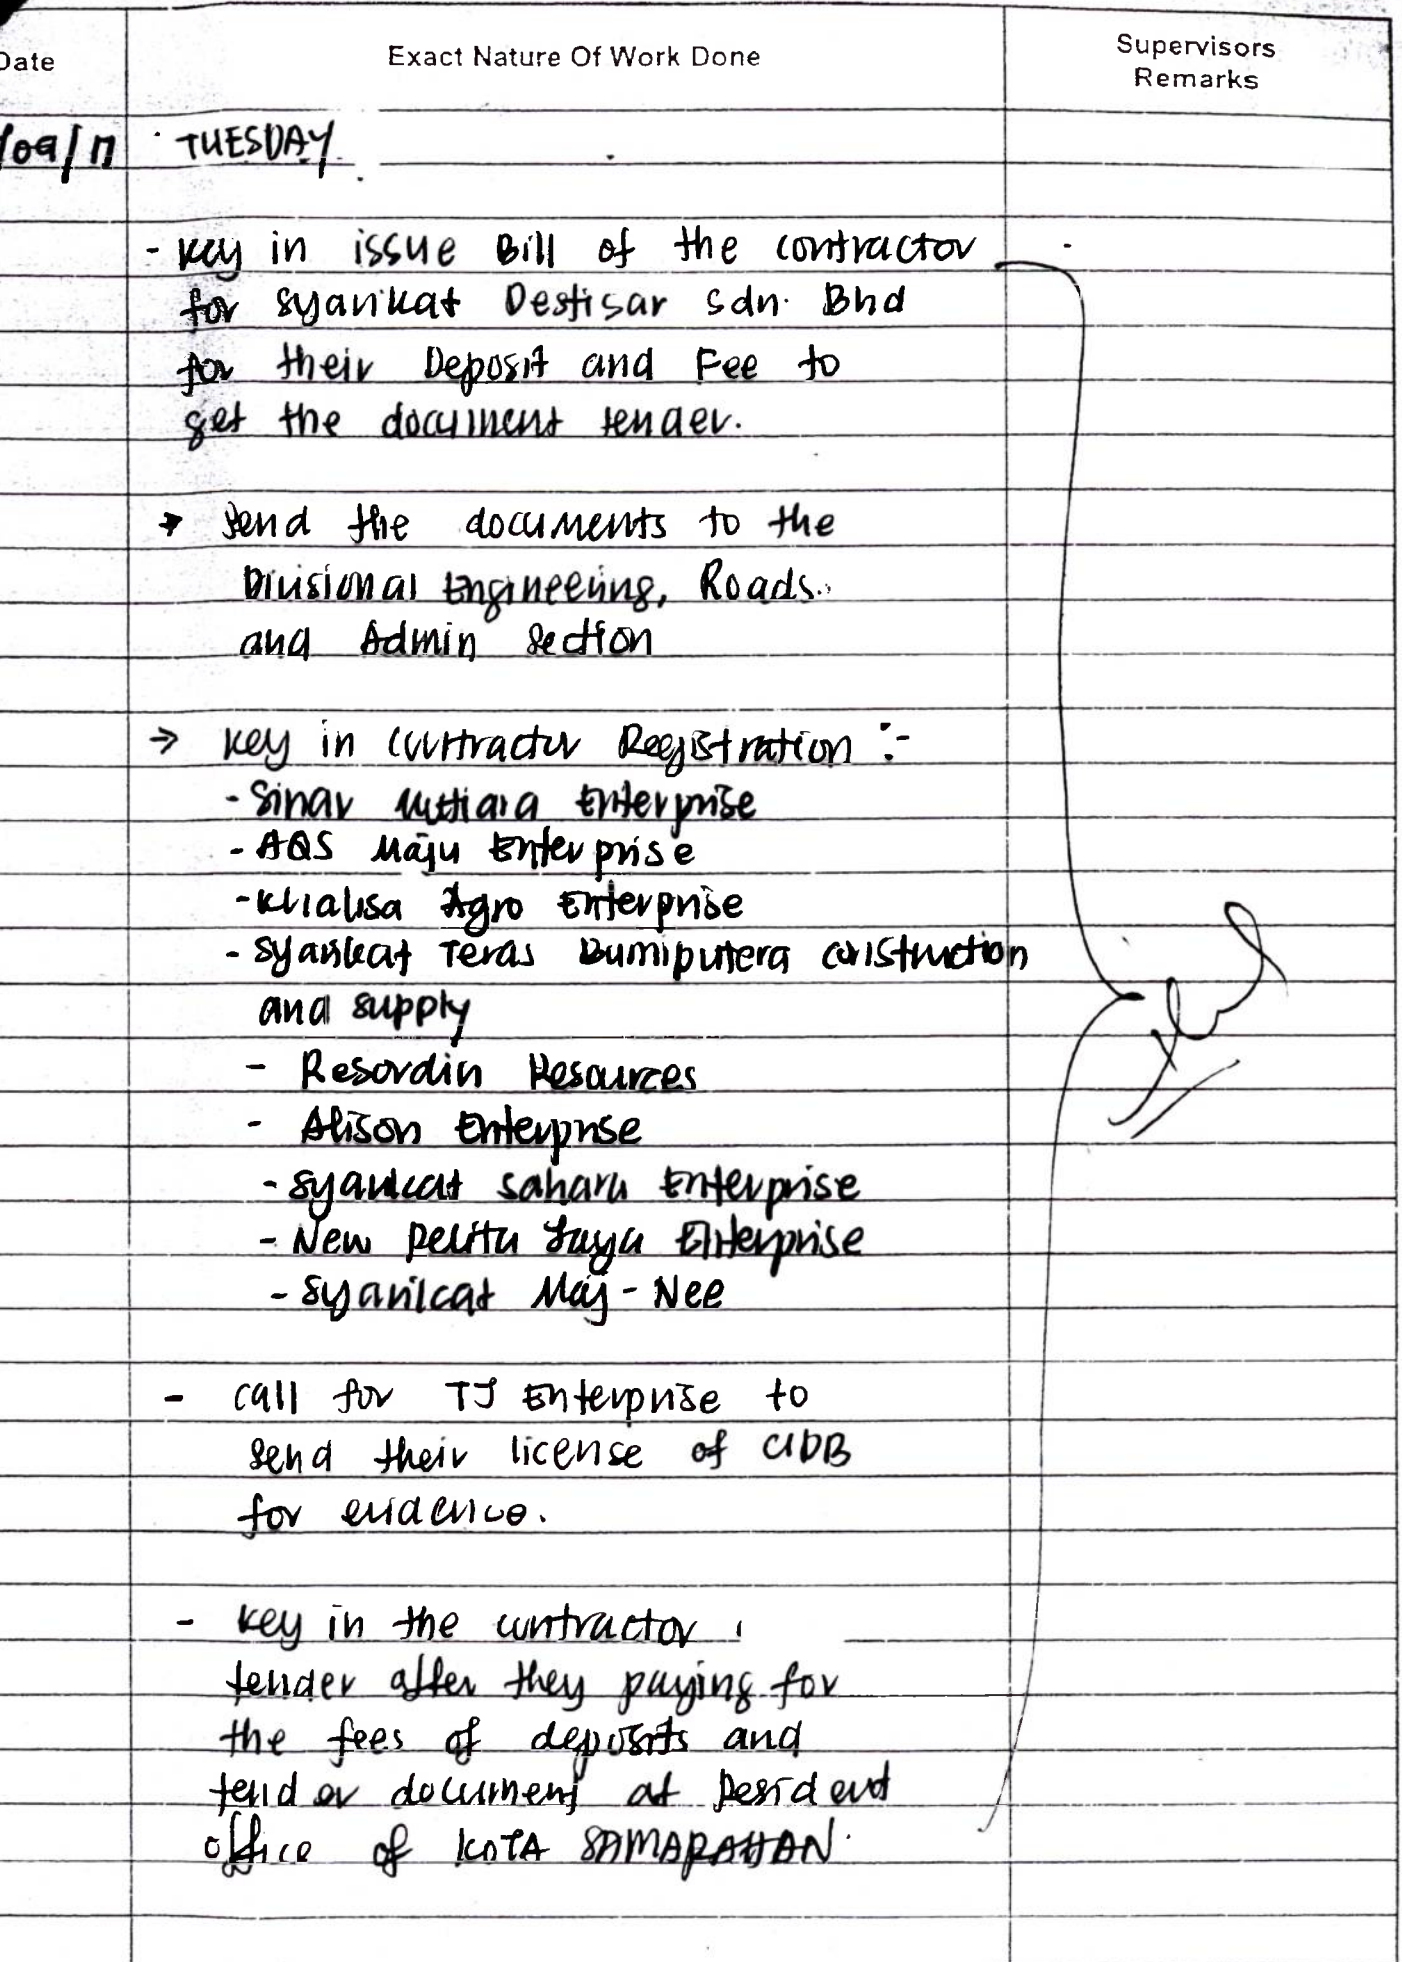 Date
Exact Nature Of Work Done
Supervisors
Remarks
/09/17
TUESDAY
- key in issue Bill of the contractor
for syarikat Destisar sdn. Bhd
for their Deposit and Fee to
get the document tender.
→ send the documents to the
Divisional Engineering, Roads.
and Admin section
→ key in contractor Reegistration :-
- Sinar Mutiara Enterprise
- AQS Maju Enterprise
- Khalisa Agro Enterprise
- Syarikat Teras Bumiputera construction
and supply
- Resordin Resources
- Alison Enterprise
- Syarikat sahara Enterprise
- New Pelita Jaya Enterprise
- Syarikat Maj - Nee
- call for TJ Enterprise to
send their license of CIDB
for evidence.
- key in the contractor
tender after they paying for
the fees of deposits and
tender document at Resident
office of KOTA SAMARAHAN.